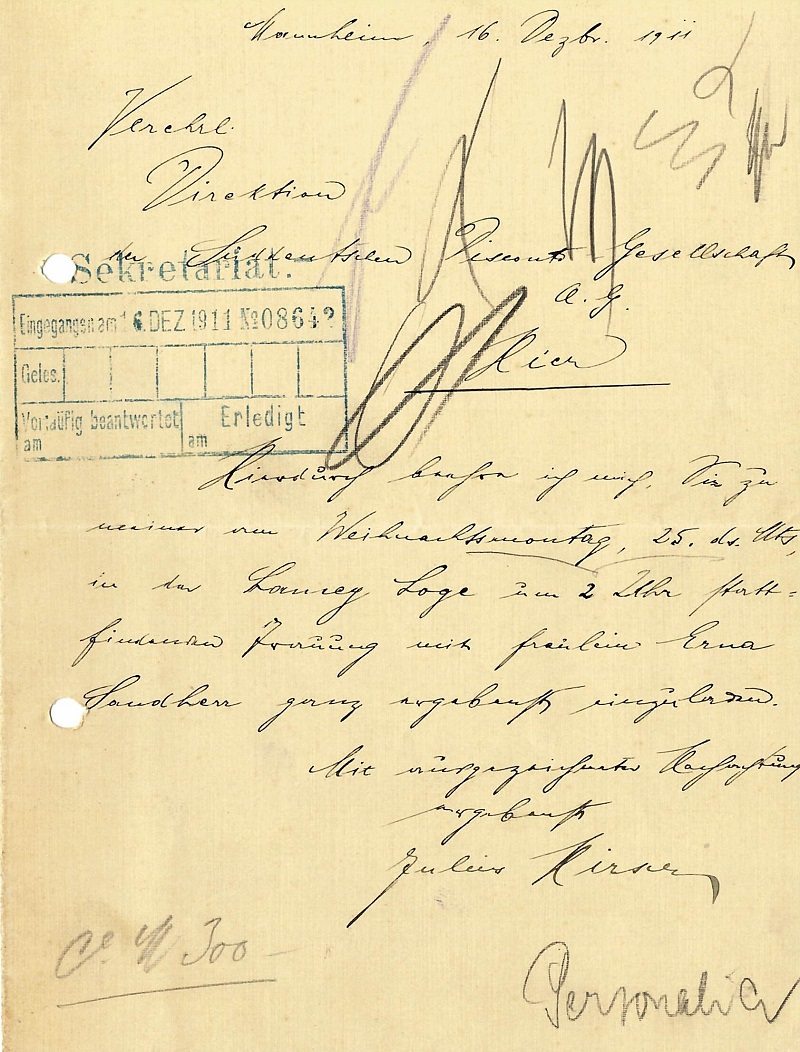 Mannheim, 16. Dezbr. 1911
Verehrl.
Direktion
der Süddeutschen Disconto-Gesellschaft
A. G.
Hier
Sekretariat.
Eingegangen am 16. DEZ. 1911 № 08642
Geles.
Vorläufig beantwortet
am
Erledigt
am
Hierdurch beehre ich mich, Sie zu
meiner am Weihnachtsmontag, 25. ds. Mts,
in der Lamey Loge um 2 Uhr statt=
findenden Trauung mit Fräulein Erna
Sandherr ganz ergebenst einzuladen.
Mit ausgezeichneter Hochachtung
ergebenst
Julius
M 300 —
Personalia